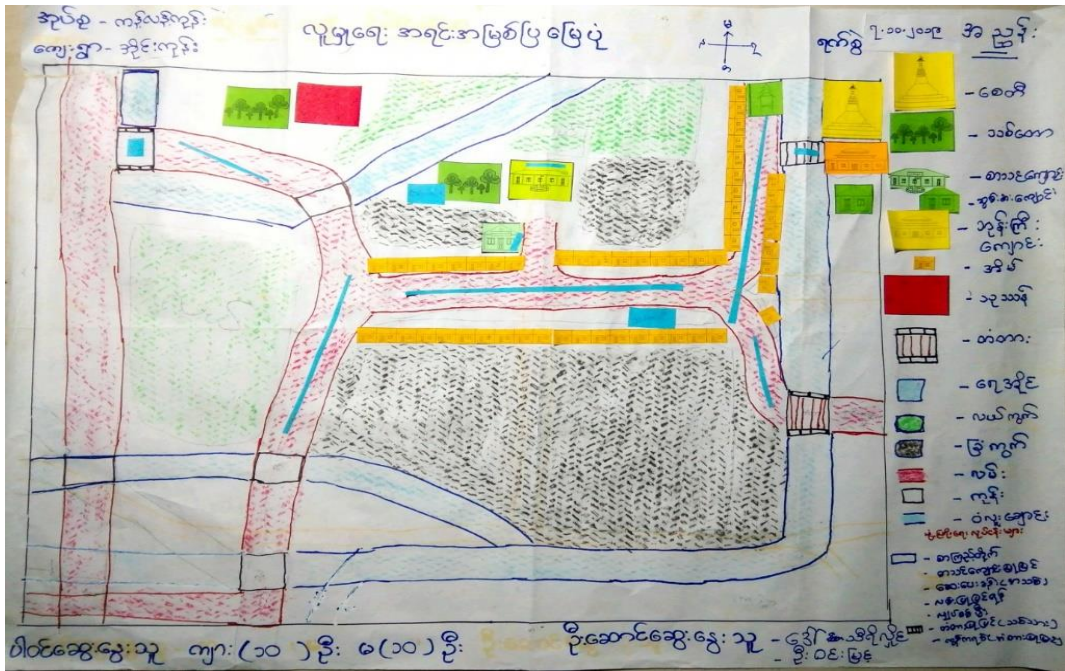 အုပ်စု - ကန်လန်ကုန်း
ကျေးရွာ - အိုင်းကုန်း
လူမှုရေး အရင်းအမြစ်ပြ မြေပုံ
ရက်စွဲ ၇.၁၀.၂၀၁၉
အညွှန်း
- စေတီ
- သစ်တော
- စာသင်ကျောင်း
- ဘုန်းကြီး
ကျောင်း
- အိမ်
- သုဿန်
- တံတား
- ရေအိုင်
- လယ်ကွက်
- ခြံကွက်
- လမ်း
- ကုန်း
ဖွံ့ဖြိုးရေး လုပ်ငန်းများ
- စာကြည့်တိုက်
ပါဝင်ဆွေးနွေးသူ ကျား (၁၀) ဦး မ (၁၀) ဦး
ဦးဆောင်ဆွေးနွေးသူ - ဒေါ်
- ဦးဝင်းမြင့်